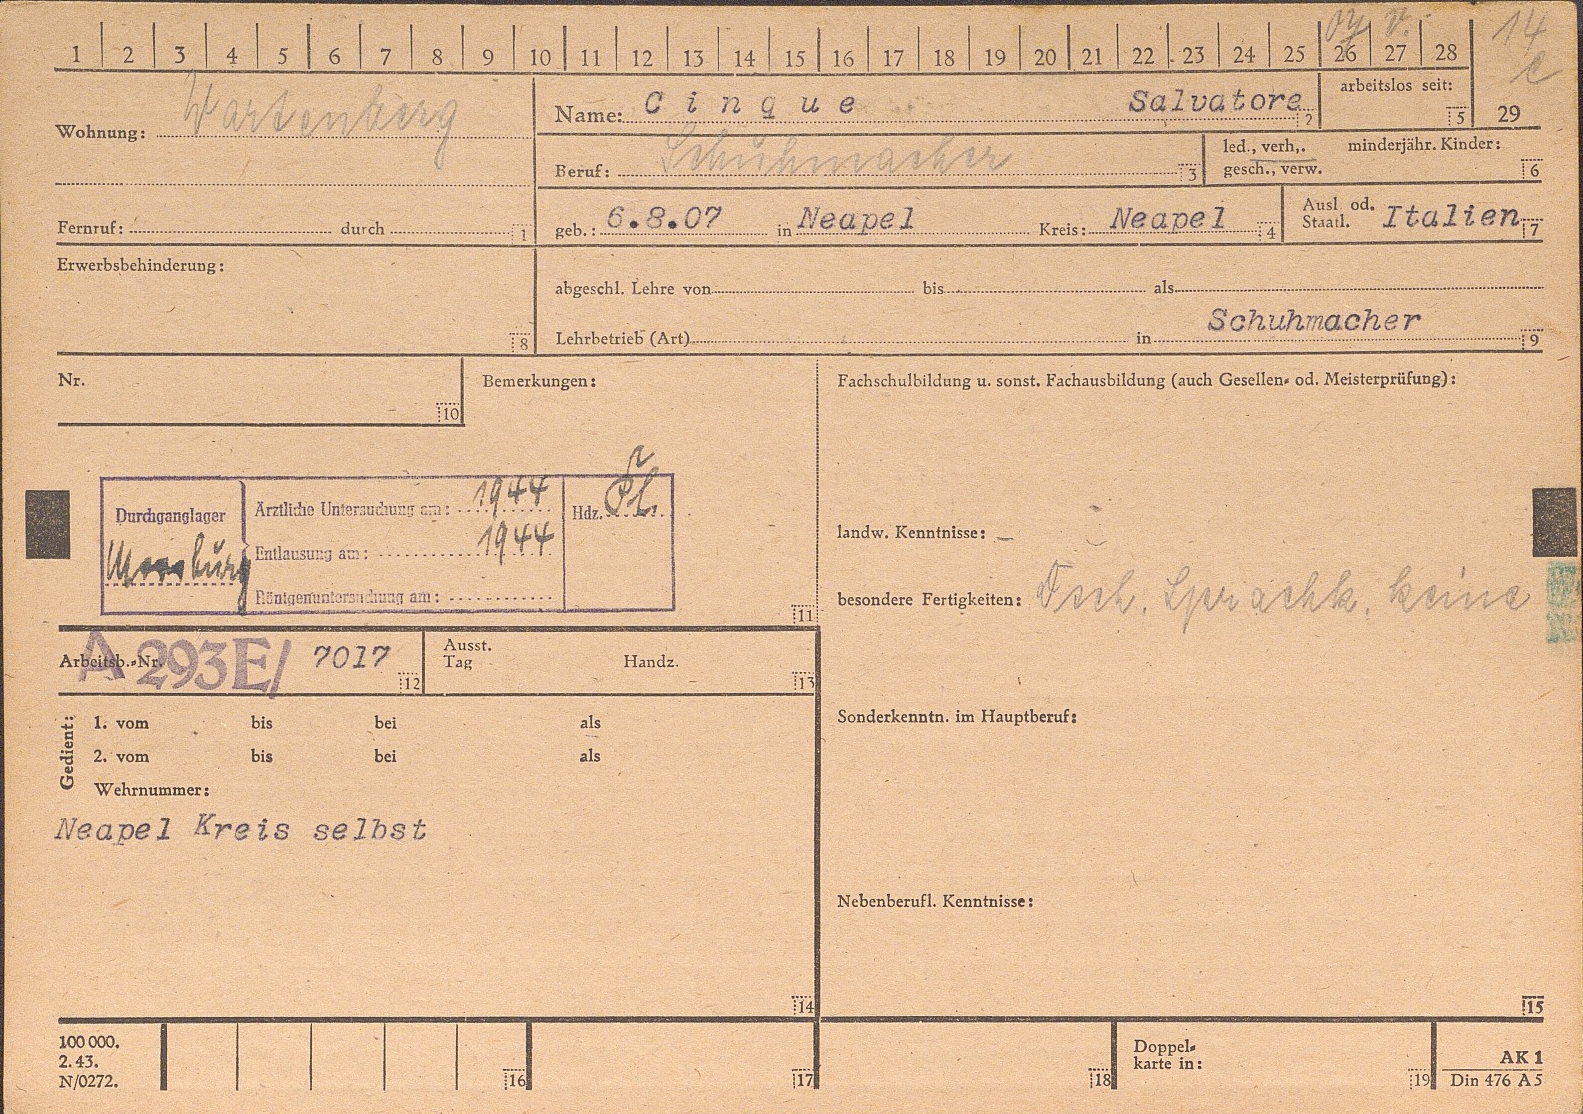 1 2 3 4 5 6 7 8 9 10 11 12 13 14 15 16 17 18 19 20 21 22 23 24 25 26 27 28
14
29
Wohnung: Wartenberg
Name: Cinque Salvatore 2
arbeitslos seit: 5
Beruf: Schuhmacher 3
led., verh,. minderjähr. Kinder:
gesch., verw. 6
Fernruf: durch 1
geb.: 6.8.07 in Neapel Kreis: Neapel 4
Ausl od.
Staatl. Italien 7
Erwerbsbehinderung:
8
abgeschl. Lehre von bis als
Schuhmacher
Lehrbetrieb (Art) in 9
Nr.
10
Bemerkungen:
Fachschulbildung u. sonst. Fachausbildung (auch Gesellen- od. Meisterprüfung):
Durchganglager
Ärztliche Untersuchung am: 1944
Hdz.
Entlausung am: 1944
Röntgenuntersuchung am:
11
landw. Kenntnisse: –
besondere Fertigkeiten: Sprachk. keine
Arbeitsb.-Nr. A 293E/ 7017 12
Ausst.
Tag Handz. 13
Gedient:
1. vom bis bei als
2. vom bis bei als
Wehrnummer:
Neapel Kreis selbst
14
Sonderkenntn. im Hauptberuf:
Nebenberufl. Kenntnisse:
15
100 000.
2. 43.
N/0272.
16
17
18
Doppel-
karte in:
19
AK 1
Din 476 A 5